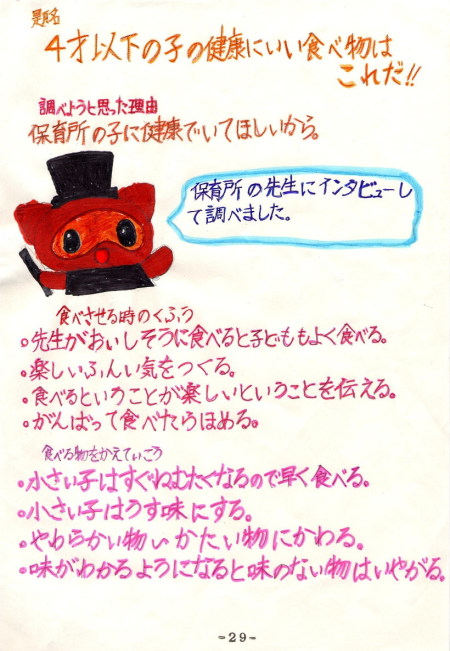 題名
4才以下の子の健康にいい食べ物は
これだ!!
調べようと思った理由
保育所の子に健康でいてほしいから。
保育所の先生にインタビューし
て調べました。
食べさせる時のくふう
。先生がおいしそうに食べると子どももよく食べる。
。楽しいふんい気をつくる。
。食べるということが楽しいということを伝える。
。がんばって食べたらほめる。
食べる物をかえていこう
・小さい子はすぐねむたくなるので早く食べる。
・小さい子はうす味にする。
・やわらかい物いかたい物にかわる。
・味がわかるようになると味のない物はいやがる。
-29-